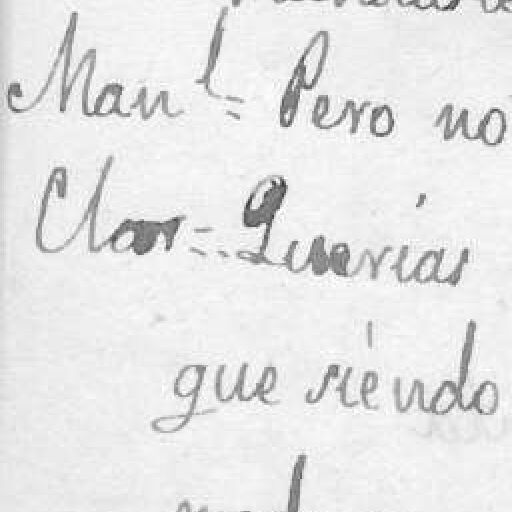 Manˡ= Pero no
Clar=.. Querias
que siéndo